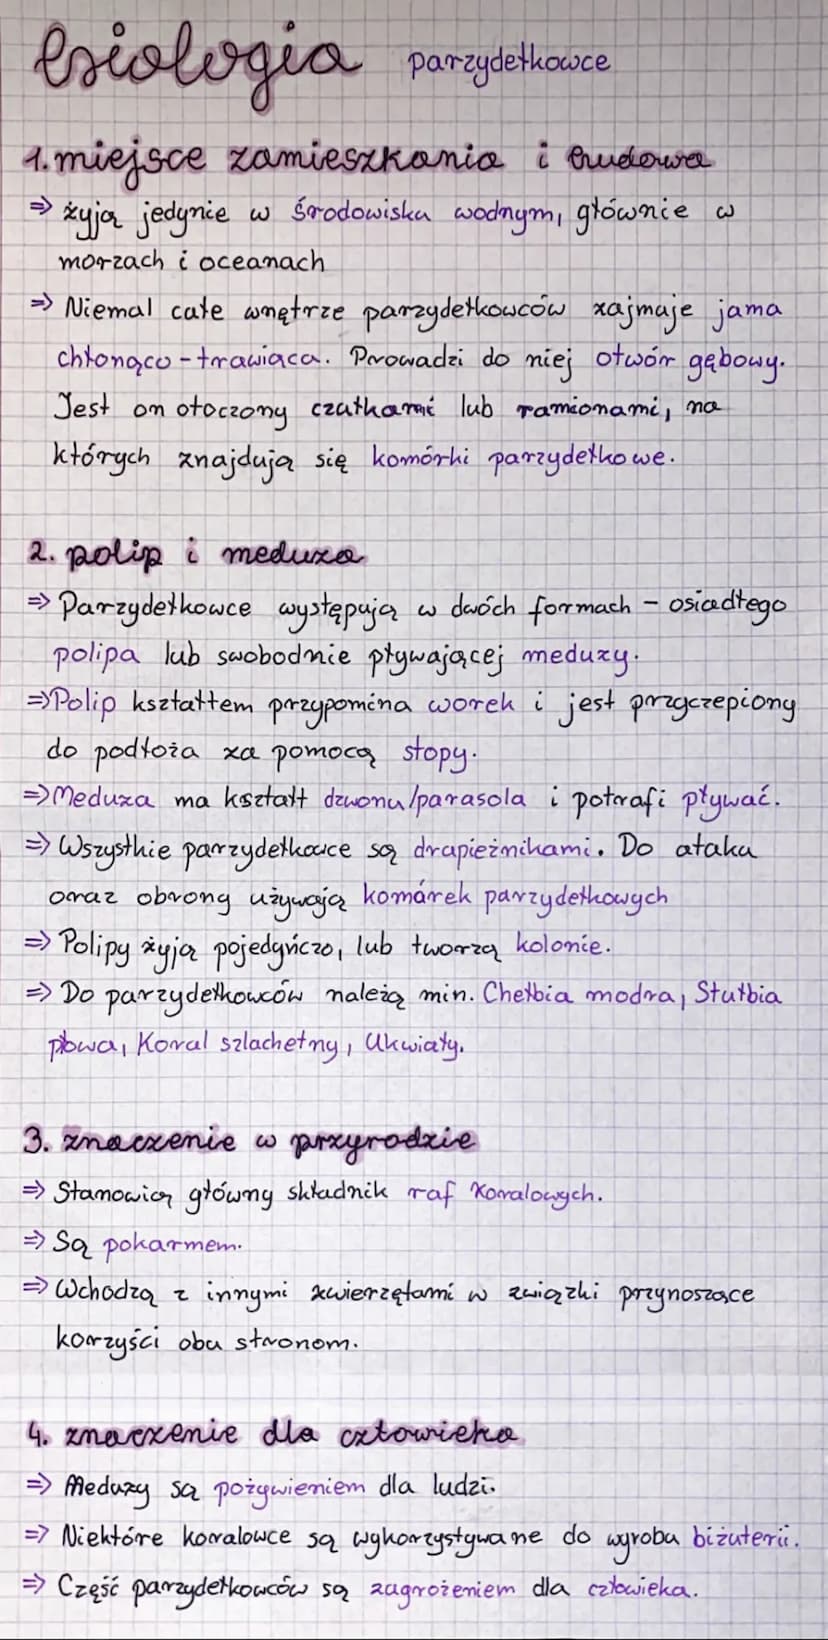 biologia parzydełkowce
1. miejsce zamieszkania i budowa
⇒ żyją jedynie w środowisku wodnym, głównie w
morzach i oceanach
⇒ Niemal całe wnętrze parzydełkowców zajmuje jama
chłonąco-trawiąca. Prowadzi do niej otwór gębowy.
Jest on otoczony czułkami lub ramionami, na
których znajdują się komórki parzydełkowe.
2. polip i meduza
⇒ Parzydełkowce występują w dwóch formach - osiadłego
polipa lub swobodnie pływającej meduzy.
⇒ Polip kształtem przypomina worek i jest przyczepiony
do podłoża za pomocą stopy.
⇒ Meduza ma kształt dzwonu/parasola i potrafi pływać.
⇒ Wszystkie parzydełkowce są drapieżnikami. Do ataku
oraz obrony używają komórek parzydełkowych
⇒ Polipy żyją pojedyńczo, lub tworzą kolonie.
⇒ Do parzydełkowców należą min. Chełbia modra, Stułbia
płowa, Koral szlachetny, Ukwiały.
3. znaczenie w przyrodzie
⇒ Stanowią główny składnik raf koralowych.
⇒ Są pokarmem.
⇒ Wchodzą z innymi zwierzętami w związki przynoszące
korzyści obu stronom.
4. znaczenie dla człowieka
⇒ Meduzy są pożywieniem dla ludzi.
⇒ Niektóre koralowce są wykorzystywane do wyrobu biżuterii.
⇒ Część parzydełkowców są zagrożeniem dla człowieka.